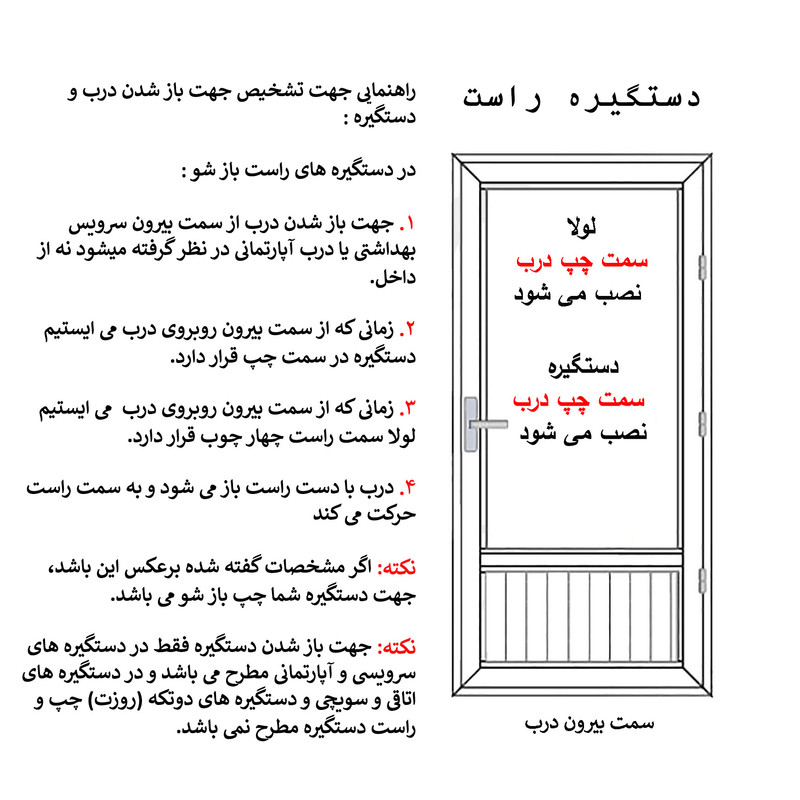 راهنمایی جهت تشخیص جهت باز شدن درب و
دستگیره :
در دستگیره های راست باز شو :
۱. جهت باز شدن درب از سمت بیرون سرویس
بهداشتی یا درب آپارتمانی در نظر گرفته میشود نه از
داخل.
۲. زمانی که از سمت بیرون روبروی درب می ایستیم
دستگیره در سمت چپ قرار دارد.
۳. زمانی که از سمت بیرون روبروی درب می ایستیم
لولا سمت راست چهار چوب قرار دارد.
۴. درب با دست راست باز می شود و به سمت راست
حرکت می کند
نکته: اگر مشخصات گفته شده برعکس این باشد،
جهت دستگیره شما چپ باز شو می باشد.
نکته: جهت باز شدن دستگیره فقط در دستگیره های
سرویسی و آپارتمانی مطرح می باشد و در دستگیره های
اتاقی و سویچی و دستگیره های دوتکه (روزت) چپ و
راست دستگیره مطرح نمی باشد.
دستگیره راست
لولا
سمت چپ درب
نصب می شود
دستگیره
سمت چپ درب
نصب می شود
سمت بیرون درب